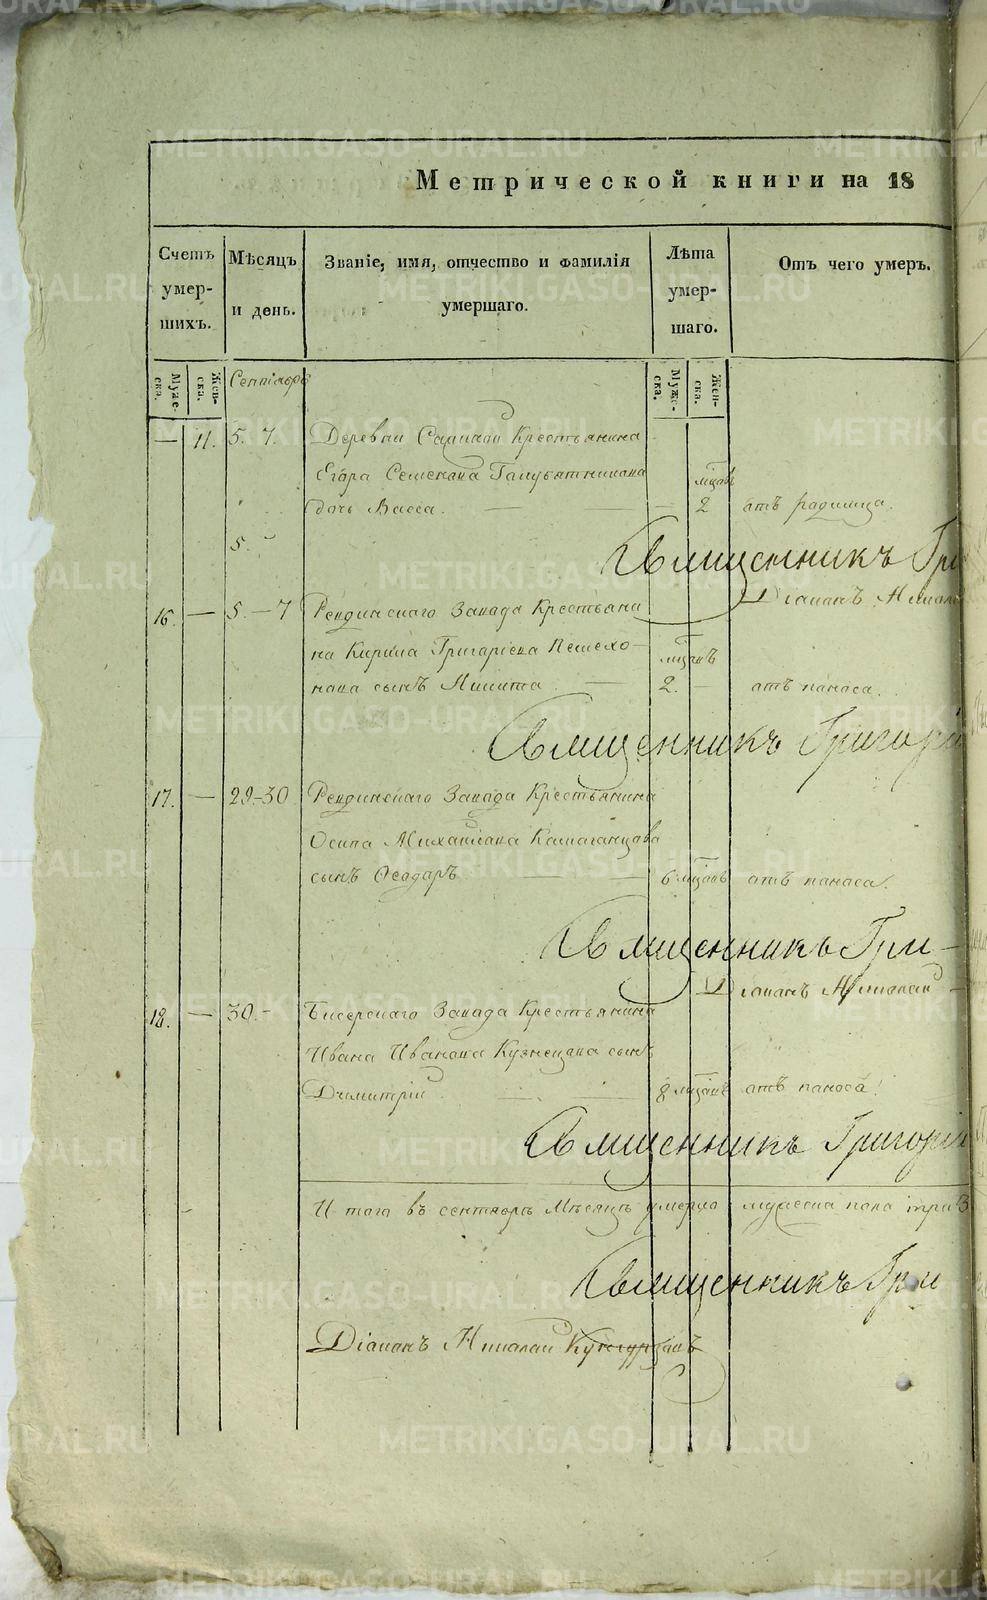 Метрической книги на 18
Счетъ умер- шихъ.
Мѣсяцъ и день.
Званіе, имя, отчество и фамилія умершаго.
Лѣта умер- шаго.
Отъ чего умеръ.
Муже- ска. Жен- ска. Сентябрь Муже- ска. Жен- ска.
— 11. 5. 7. Деревни Крестьянина
Егора Семенова мцовъ
дочь Васса. — — — 2 отъ родимца.
5. Священникъ Гри
Діаконъ Никола
16. — 5. — 7 Ревдинскаго Завода Крестьяни
на Кирила Григоріева Пешехо- мцовъ
нова сынъ Никита. — 2. — отъ поноса.
Священникъ Григорі
17. — 29-30 Ревдинскаго Завода Крестьянина
Осипа Михайлова
сынъ Ѳеодоръ — — 6 мцовъ отъ поноса.
Священникъ Гри-
Діаконъ Николай
18. — 30. - Бисерскаго Завода Крестьянина
Ивана Иванова Кузнецова сынъ
Димитрій. — — 8 мцовъ отъ поноса.
Священникъ Григорій
И того въ сентябрѣ Мѣсяцѣ умерло мужеска пола три 3
Священникъ Гри
Діаконъ Николай
METRIKI.GASO-URAL.RU